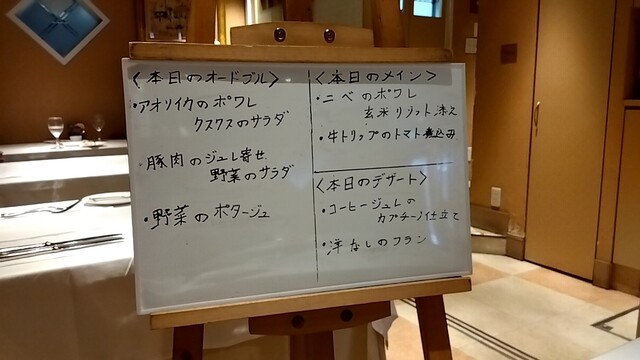 〈本日のオードブル〉
・アオリイカのポワレ
クスクスのサラダ
・豚肉のジュレ寄せ
野菜のサラダ
・野菜のポタージュ
〈本日のメイン〉
・ニベのポワレ
玄米リゾット添え
・牛トリップのトマト煮込み
〈本日のデザート〉
・コーヒージュレの
カプチーノ仕立て
・洋なしのフラン